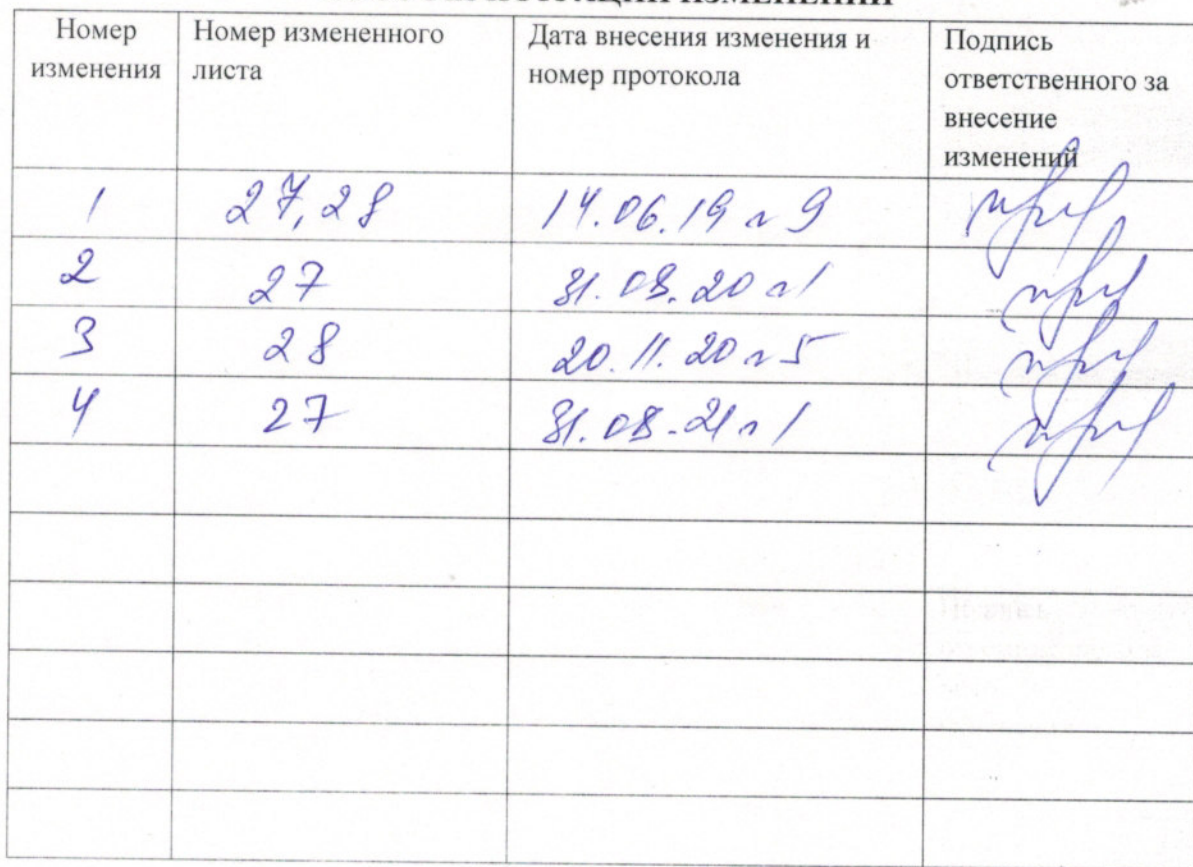 Номер изменения | Номер измененного листа | Дата внесения изменения и номер протокола | Подпись ответственного за внесение изменений
1 | 27, 28 | 14.06.19 n 9
2 | 27 | 31.08.20 n 1
3 | 28 | 20.11.20 n 5
4 | 27 | 31.08.21 n 1